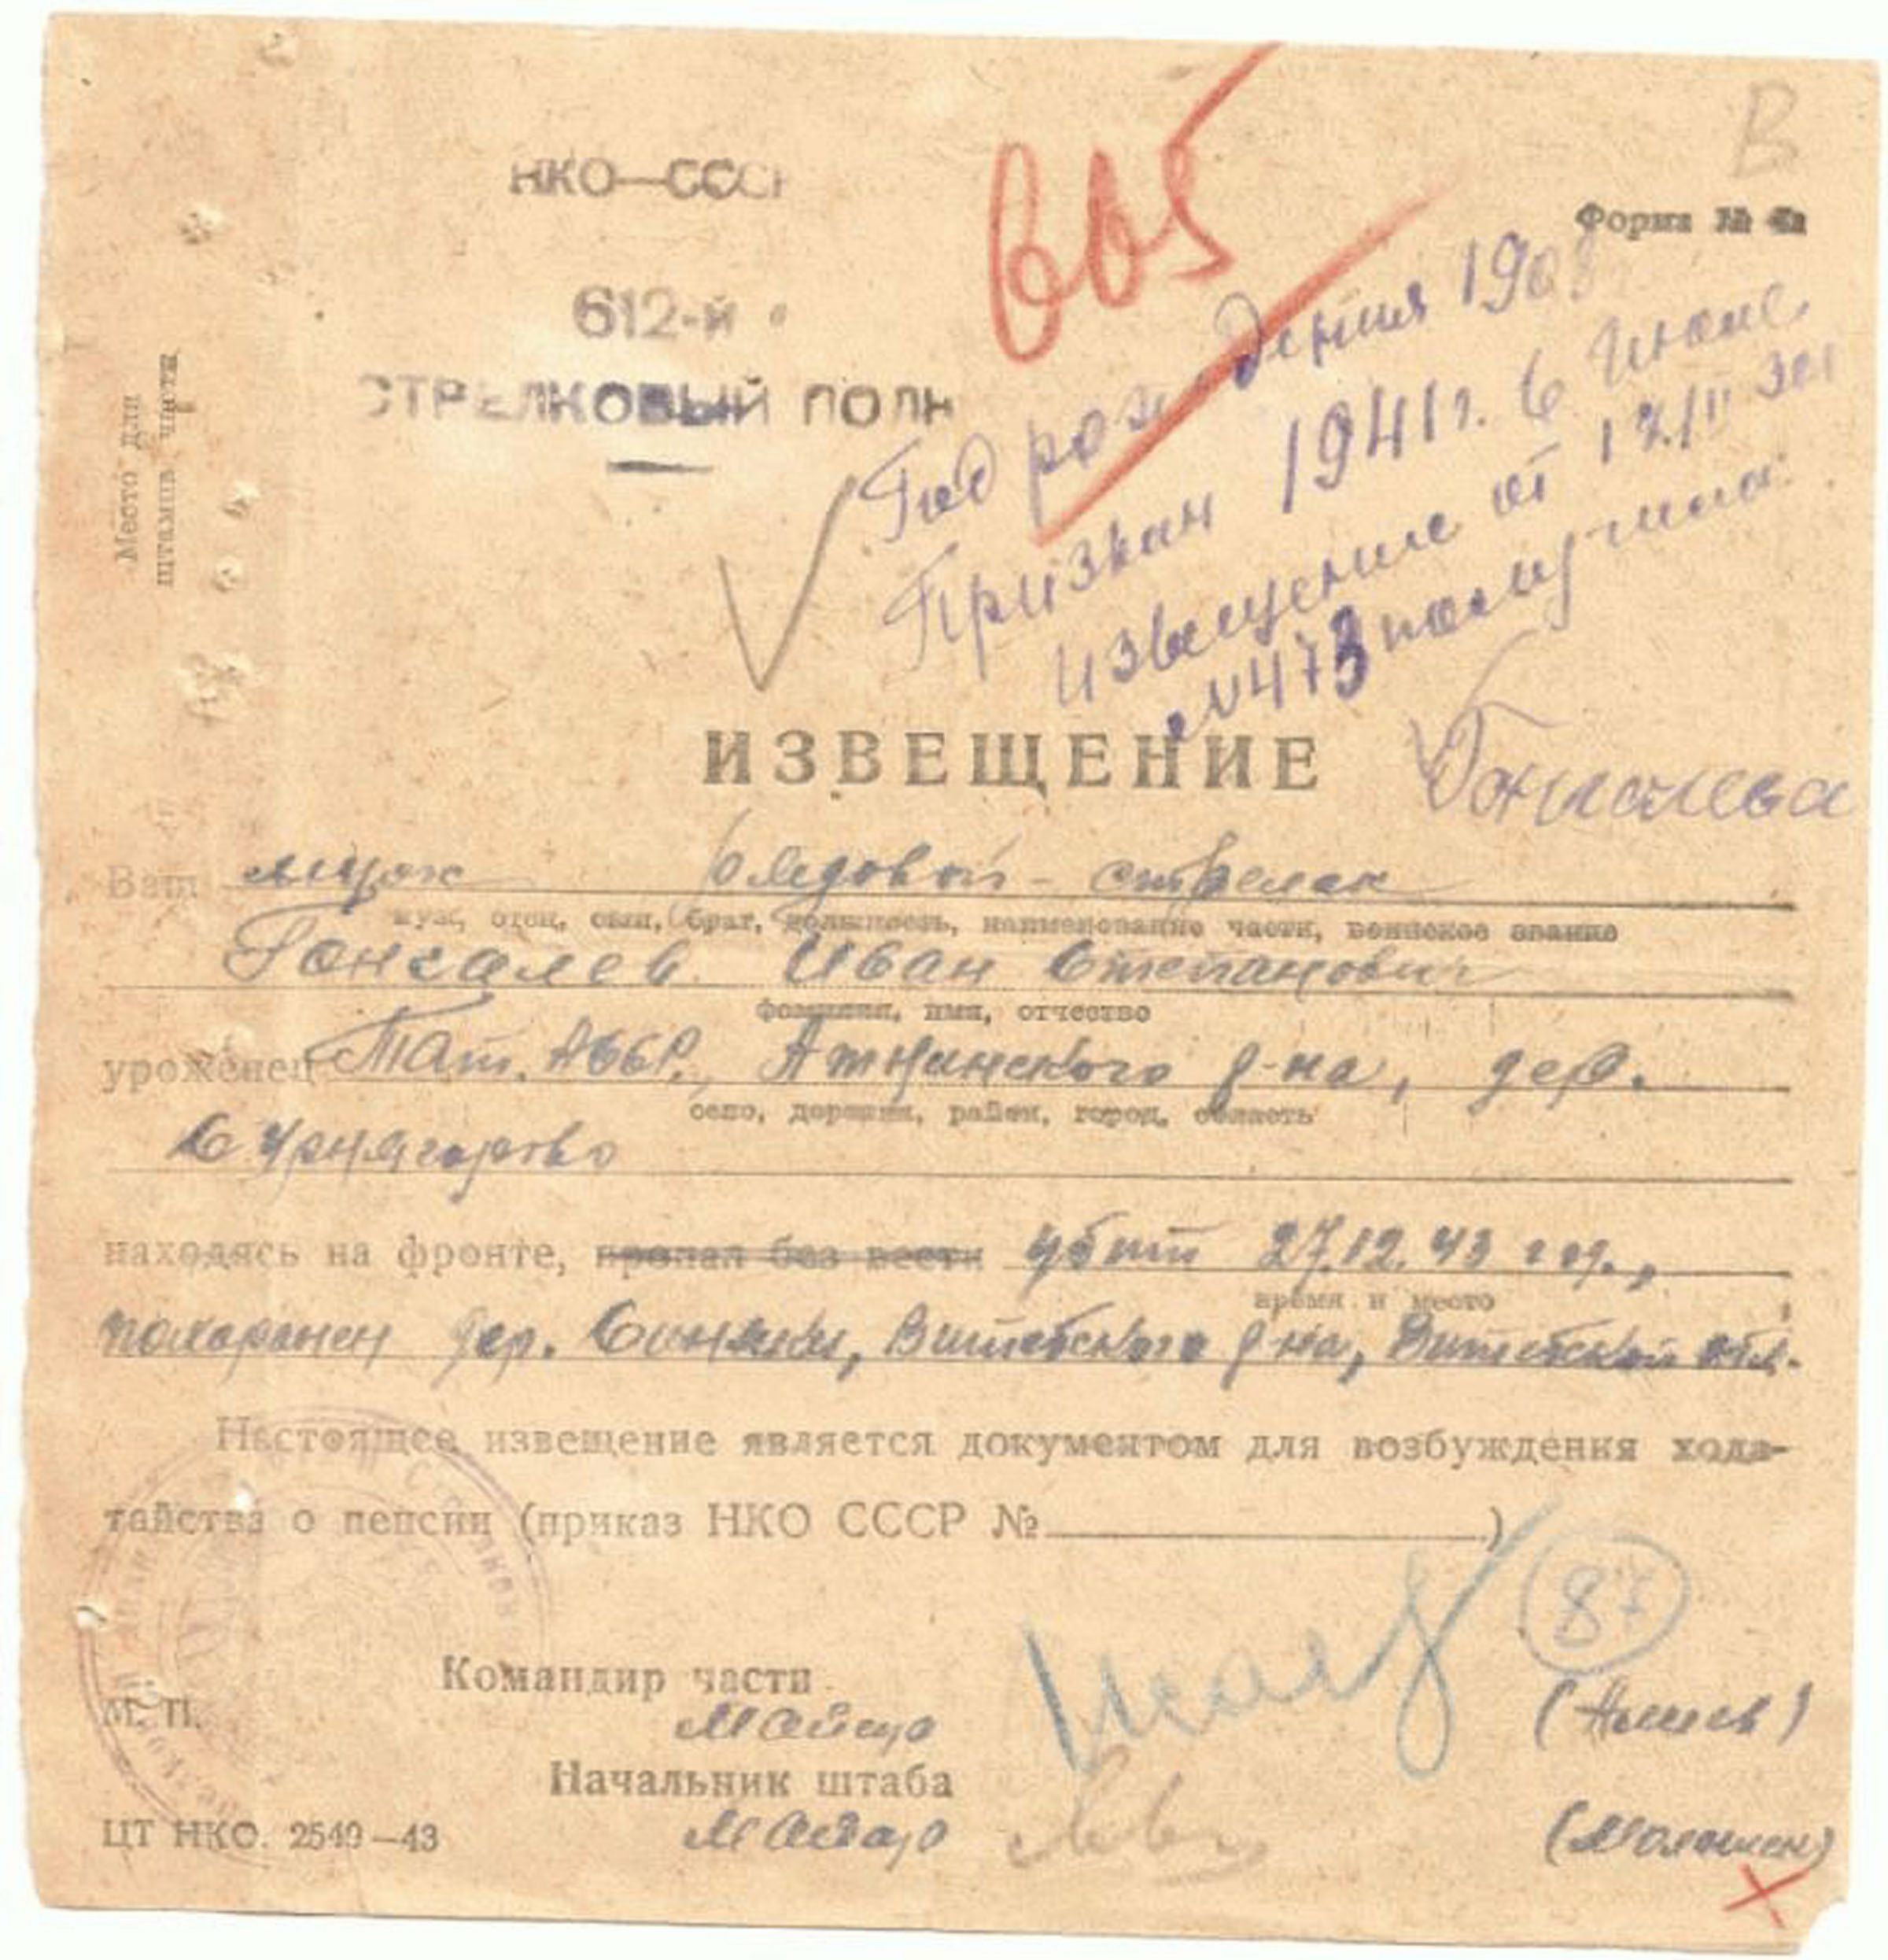 В
НКО—СССР
Форма № 4а
605
612-й
СТРЕЛКОВЫЙ ПОЛК
Место для
штампа части
Год рождения 1908
Призван 1941 г. 6 Июле
извещение от 17/II
№ 473 получила
ИЗВЕЩЕНИЕ
Ваш муж рядовой - стрелок
муж, отец, сын, брат, должность, наименование части, воинское звание
Гонгалев Иван Степанович
фамилия, имя, отчество
уроженец Тат. АССР, Атнинского р-на, дер.
село, деревня, район, город, область
находясь на фронте, пропал без вести убит 27.12.43 год.,
время и место
похоронен дер. Витебского р-на, Витебской обл.
Настоящее извещение является документом для возбуждения хода-
тайства о пенсии (приказ НКО СССР № )
87
Командир части
М. П. Майор
Начальник штаба
ЦТ НКО. 2549—43 Майор